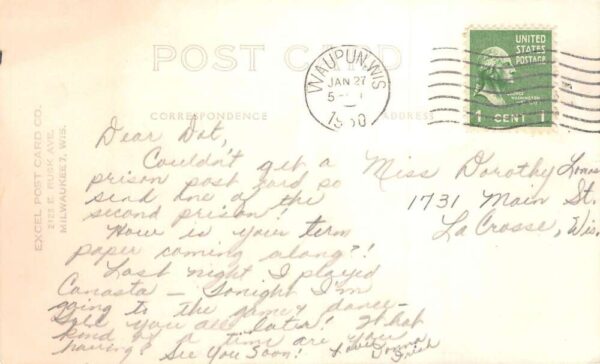 POST CARD
CORRESPONDENCE
ADDRESS
EXCEL POST CARD CO.
2123 E. RUSK AVE.
MILWAUKEE 7, WIS.
WAUPUN, WIS.
JAN 27
5
1950
UNITED
STATES
POSTAGE
1 CENT 1
Dear Dot,
Couldn't get a
prison post card so
send one of the
second prison!
How is your term
paper coming along?!
Last night I played
Canasta — Tonight I'm
going to the game & dance —
Tell you all later! What
kind of a time are you
having? See You Soon!
Love Donna
Miss Dorothy
1731 Main St.
LaCrosse, Wis.